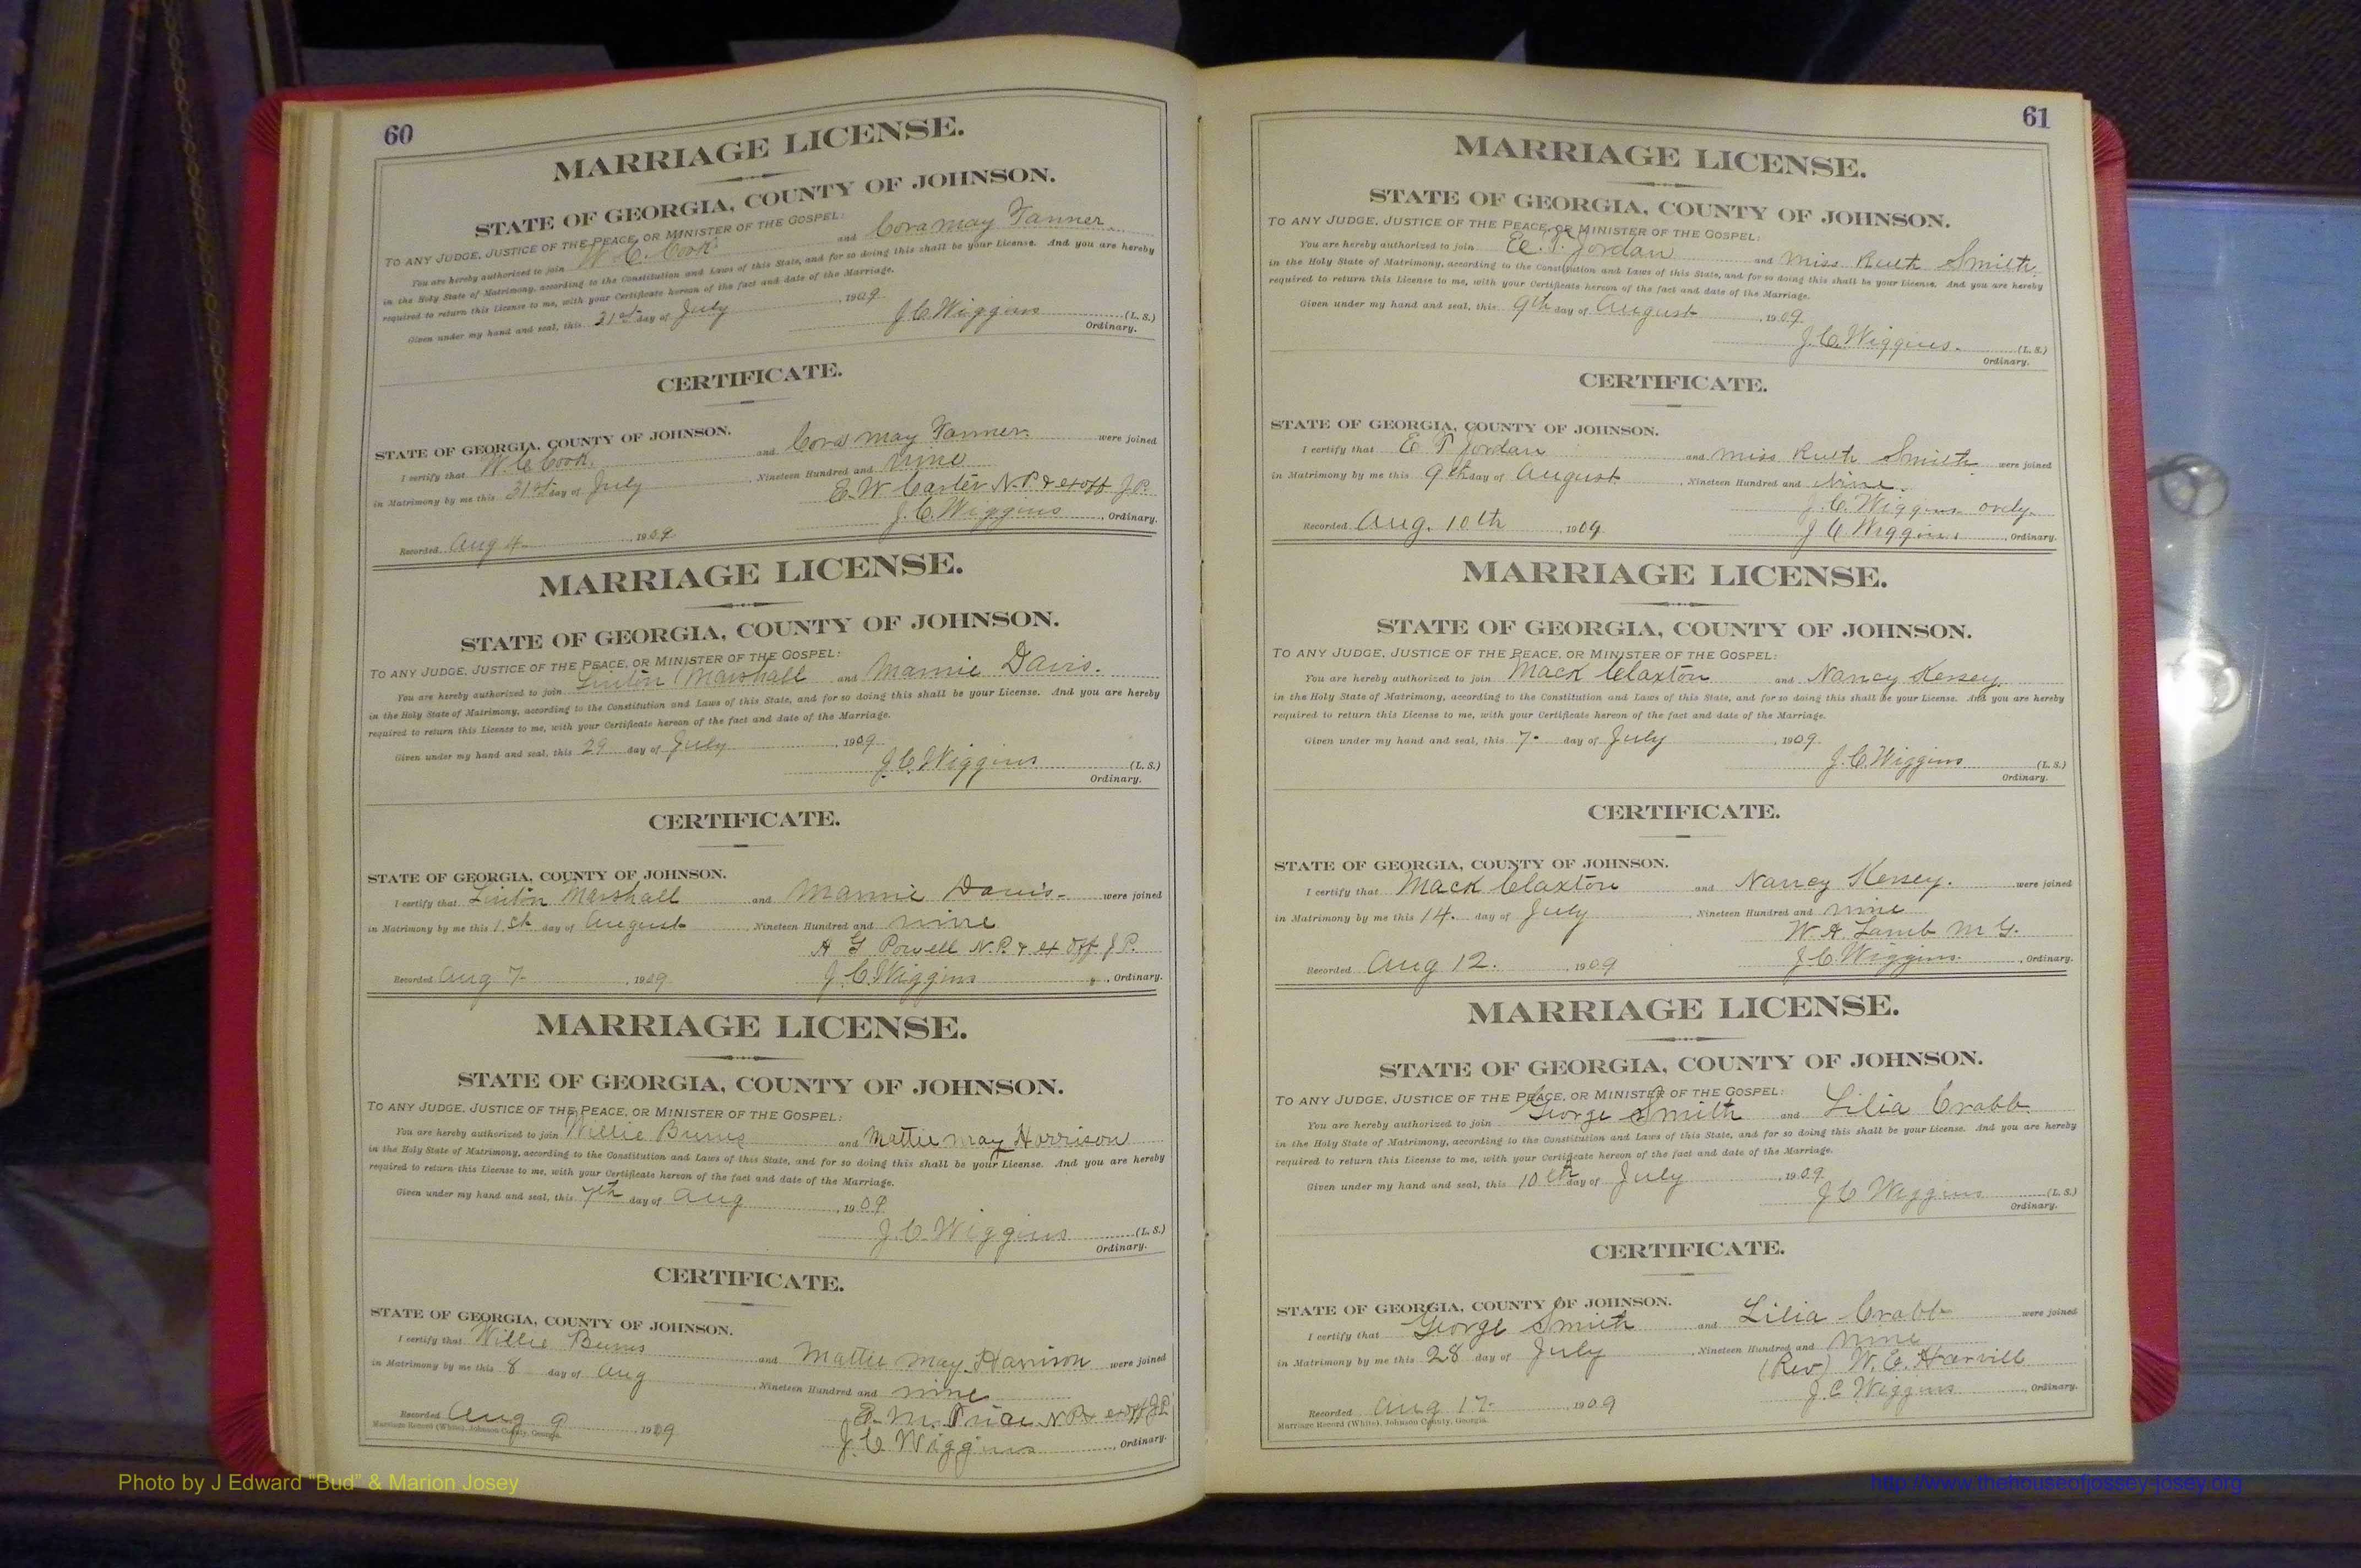 60
MARRIAGE LICENSE.
STATE OF GEORGIA, COUNTY OF JOHNSON.
TO ANY JUDGE, JUSTICE OF THE PEACE, OR MINISTER OF THE GOSPEL:
You are hereby authorized to join W. C. Cook and Cora May Tanner
in the Holy State of Matrimony, according to the Constitution and Laws of this State, and for so doing this shall be your License. And you are hereby
required to return this License to me, with your Certificate hereon of the fact and date of the Marriage.
Given under my hand and seal, this 31st day of July, 1909
J. C. Wiggins (L. S.)
Ordinary.
CERTIFICATE.
STATE OF GEORGIA, COUNTY OF JOHNSON.
I certify that W C Cook and Cora May Tanner were joined
in Matrimony by me this 31st day of July, Nineteen Hundred and nine
E. W. Carter N. P. & ex off J. P.
Recorded Aug 4 1909 J. C. Wiggins, Ordinary.
MARRIAGE LICENSE.
STATE OF GEORGIA, COUNTY OF JOHNSON.
TO ANY JUDGE, JUSTICE OF THE PEACE, OR MINISTER OF THE GOSPEL:
You are hereby authorized to join Linton Marshall and Mamie Davis.
in the Holy State of Matrimony, according to the Constitution and Laws of this State, and for so doing this shall be your License. And you are hereby
required to return this License to me, with your Certificate hereon of the fact and date of the Marriage.
Given under my hand and seal, this 29 day of July, 1909
J. C. Wiggins (L. S.)
Ordinary.
CERTIFICATE.
STATE OF GEORGIA, COUNTY OF JOHNSON.
I certify that Linton Marshall and Mamie Davis were joined
in Matrimony by me this 1st day of August, Nineteen Hundred and nine
Powell N. P. & ex off J. P.
Recorded Aug 7, 1909 J. C. Wiggins, Ordinary.
MARRIAGE LICENSE.
STATE OF GEORGIA, COUNTY OF JOHNSON.
TO ANY JUDGE, JUSTICE OF THE PEACE, OR MINISTER OF THE GOSPEL:
You are hereby authorized to join Willie Burns and Mattie May Harrison
in the Holy State of Matrimony, according to the Constitution and Laws of this State, and for so doing this shall be your License. And you are hereby
required to return this License to me, with your Certificate hereon of the fact and date of the Marriage.
Given under my hand and seal, this 7th day of Aug, 1909
J. C. Wiggins (L. S.)
Ordinary.
CERTIFICATE.
STATE OF GEORGIA, COUNTY OF JOHNSON.
I certify that Willie Burns and Mattie May Harrison were joined
in Matrimony by me this 8 day of Aug, Nineteen Hundred and nine
M. Price N. P. & ex off J P
Recorded Aug 9, 1909 J. C. Wiggins, Ordinary.
Marriage Record (White), Johnson County, Georgia.
61
MARRIAGE LICENSE.
STATE OF GEORGIA, COUNTY OF JOHNSON.
TO ANY JUDGE, JUSTICE OF THE PEACE, OR MINISTER OF THE GOSPEL:
You are hereby authorized to join E. T. Jordan and Miss Ruth Smith
in the Holy State of Matrimony, according to the Constitution and Laws of this State, and for so doing this shall be your License. And you are hereby
required to return this License to me, with your Certificate hereon of the fact and date of the Marriage.
Given under my hand and seal, this 9th day of August, 1909
J. C. Wiggins. (L. S.)
Ordinary.
CERTIFICATE.
STATE OF GEORGIA, COUNTY OF JOHNSON.
I certify that E T Jordan and Miss Ruth Smith were joined
in Matrimony by me this 9th day of August, Nineteen Hundred and Nine.
J. C. Wiggins ordy.
Recorded Aug. 10th, 1909 J C Wiggins, Ordinary.
MARRIAGE LICENSE.
STATE OF GEORGIA, COUNTY OF JOHNSON.
TO ANY JUDGE, JUSTICE OF THE PEACE, OR MINISTER OF THE GOSPEL:
You are hereby authorized to join Mack Claxton and Nancy Kersey.
in the Holy State of Matrimony, according to the Constitution and Laws of this State, and for so doing this shall be your License. And you are hereby
required to return this License to me, with your Certificate hereon of the fact and date of the Marriage.
Given under my hand and seal, this 7. day of July, 1909.
J. C. Wiggins (L. S.)
Ordinary.
CERTIFICATE.
STATE OF GEORGIA, COUNTY OF JOHNSON.
I certify that Mack Claxton and Nancy Kersey. were joined
in Matrimony by me this 14. day of July, Nineteen Hundred and nine
W. A. Lamb M. G.
Recorded Aug 12., 1909 J. C. Wiggins, Ordinary.
MARRIAGE LICENSE.
STATE OF GEORGIA, COUNTY OF JOHNSON.
TO ANY JUDGE, JUSTICE OF THE PEACE, OR MINISTER OF THE GOSPEL:
You are hereby authorized to join George Smith and Lilia Crabb.
in the Holy State of Matrimony, according to the Constitution and Laws of this State, and for so doing this shall be your License. And you are hereby
required to return this License to me, with your Certificate hereon of the fact and date of the Marriage.
Given under my hand and seal, this 10th day of July, 1909.
J C Wiggins (L. S.)
Ordinary.
CERTIFICATE.
STATE OF GEORGIA, COUNTY OF JOHNSON.
I certify that George Smith and Lilia Crabb were joined
in Matrimony by me this 28 day of July, Nineteen Hundred and nine
(Rev) W. C. Harvill
Recorded Aug, 1909 J. C Wiggins, Ordinary.
Marriage Record (White), Johnson County, Georgia.
Photo by J Edward "Bud" & Marion Josey
http://www.thehouseofjossey-josey.org